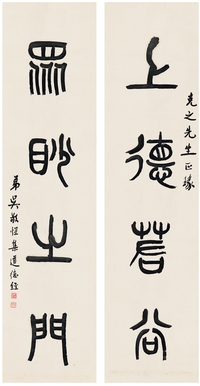 上德若谷
克之先生正篆
眾眇之門
弟吳敬恒集道德經